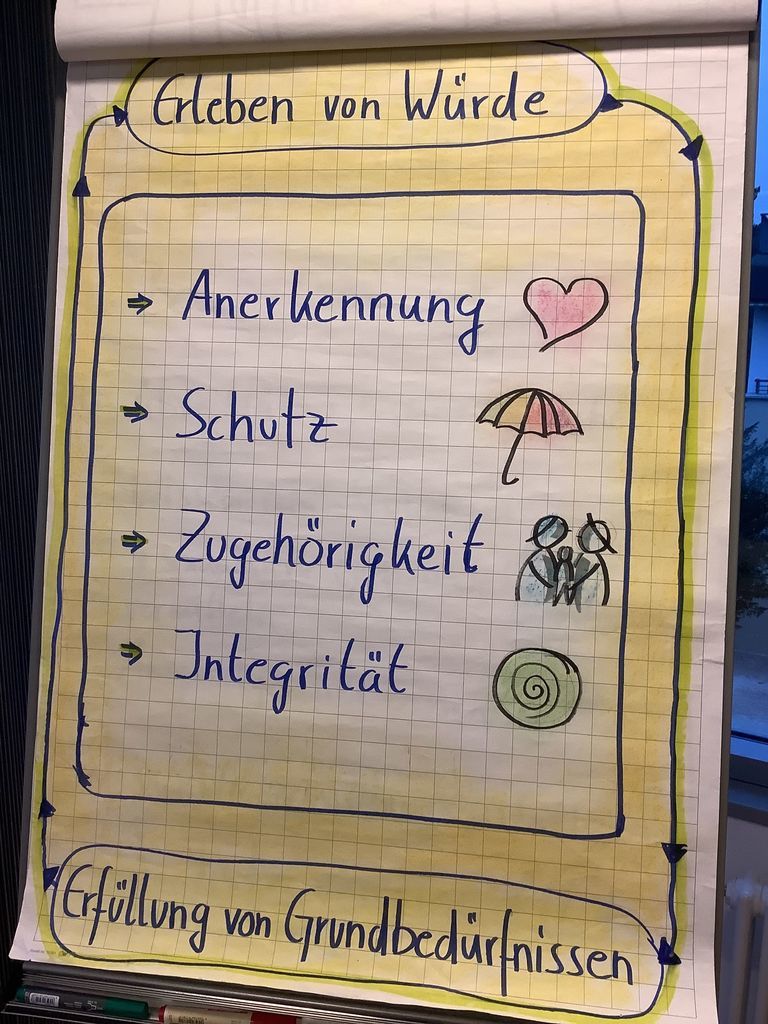 Erleben von Würde
Anerkennung
Schutz
Zugehörigkeit
Integrität
Erfüllung von Grundbedürfnissen